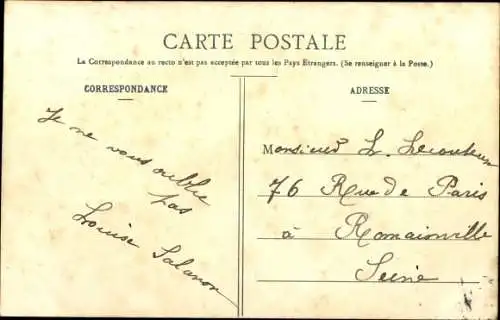 CARTE POSTALE
La Correspondance au recto n'est pas acceptée par tous les Pays Etrangers. (Se renseigner à la Poste.)
CORRESPONDANCE
Je ne vous oublie
pas
Louise Salanon
ADRESSE
Monsieur L. Lecouteux
76 Rue de Paris
à Romainville
Seine